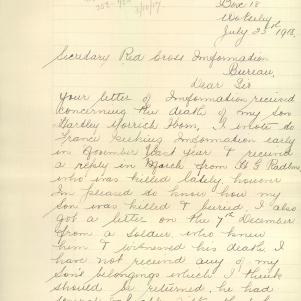 Box 18
Wolseley
July 23rd 1918
2/10/17
Secretary Red Cross Imformation
Bureau,
Dear Sir
Your letter of Imformation received
concerning the death of my son
Hartley Morrish Hoem, I wrote to
France seeking Imformation early
in November last year & received
a reply in March from
who was killed lately, however
Im pleased to know how my
son was killed & buried, I also
got a letter on the 7th December
from a soldier who knew
him & witnessed his death I
have not received any of my
son's belongings which I think
should be returned, he had